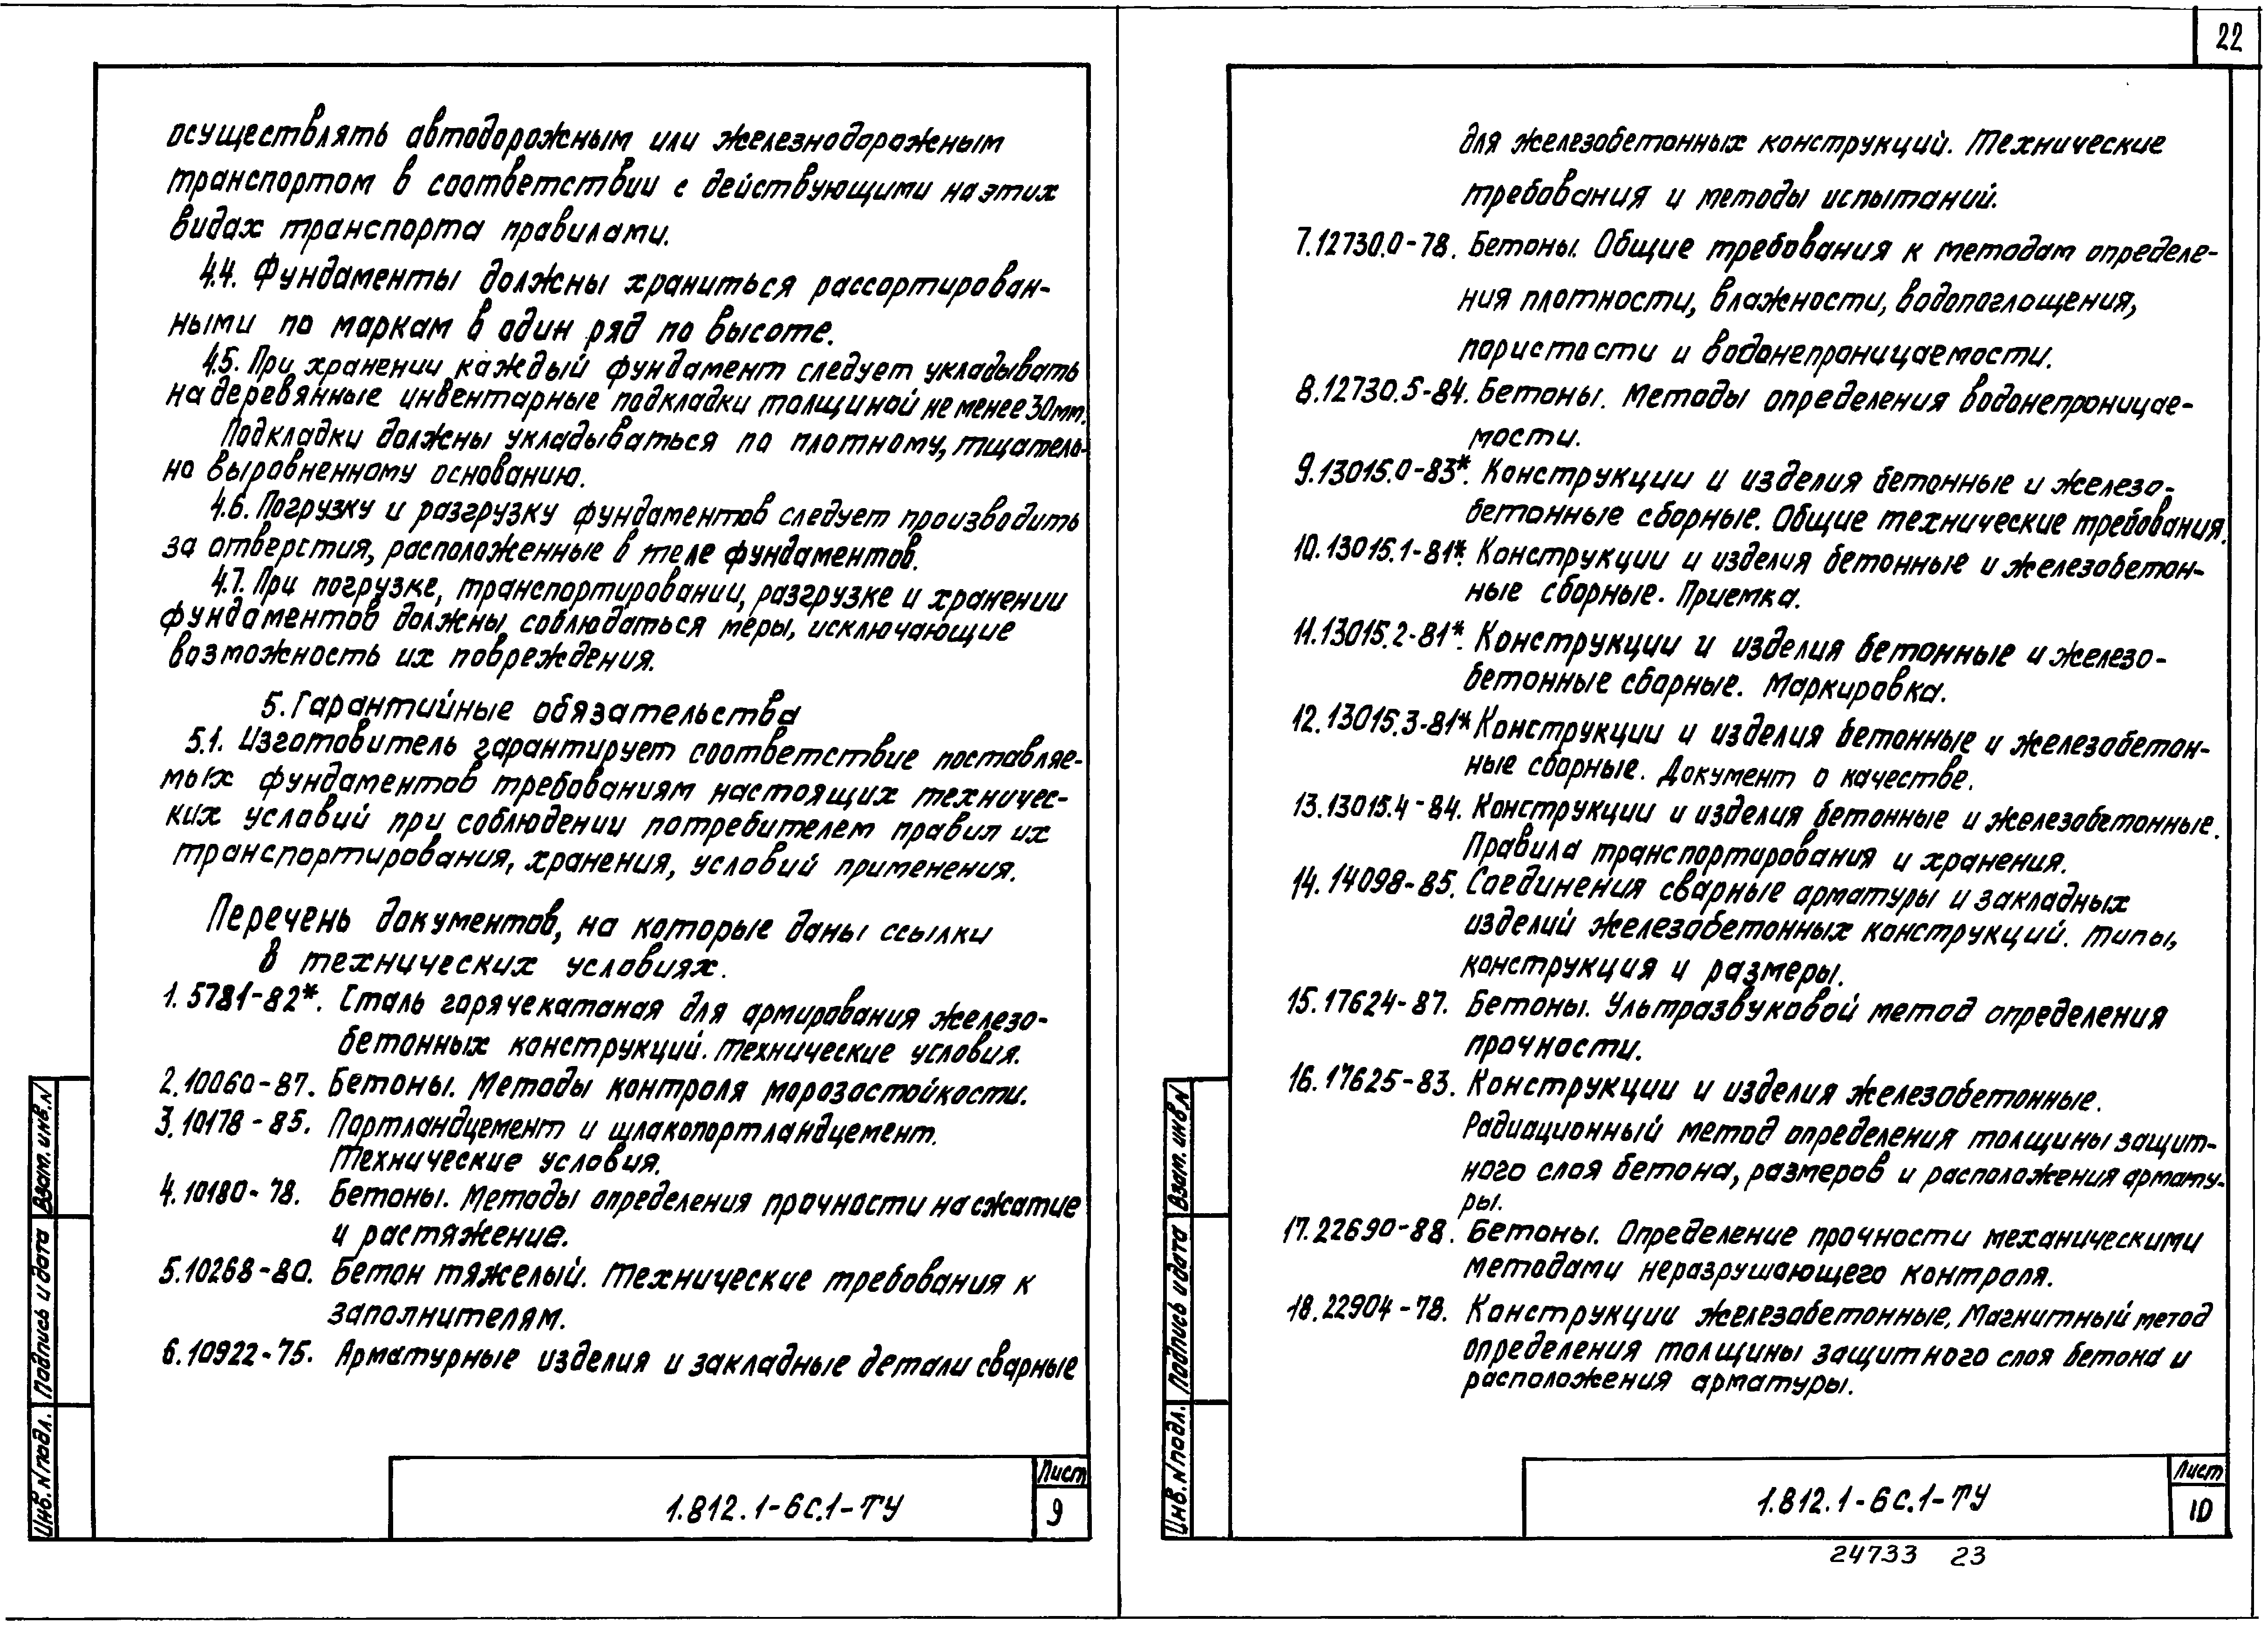 22
осуществлять автодорожным или железнодорожным
транспортом в соответствии с действующими на этих
видах транспорта правилами.
4.4. Фундаменты должны храниться рассортирован-
ными по маркам в один ряд по высоте.
4.5. При хранении каждый фундамент следует укладывать
на деревянные инвентарные подкладки толщиной не менее 30мм.
Подкладки должны укладываться по плотному, тщатель-
но выровненному основанию.
4.6. Погрузку и разгрузку фундаментов следует производить
за отверстия, расположенные в теле фундаментов.
4.7. При погрузке, транспортировании, разгрузке и хранении
фундаментов должны соблюдаться меры, исключающие
возможность их повреждения.
5. Гарантийные обязательства
5.1. Изготовитель гарантирует соответствие поставляе-
мых фундаментов требованиям настоящих техничес-
ких условий при соблюдении потребителем правил их
транспортирования, хранения, условий применения.
Перечень документов, на которые даны ссылки
в технических условиях.
1. 5781-82*. Сталь горячекатаная для армирования железо-
бетонных конструкций. Технические условия.
2. 10060-87. Бетоны. Методы контроля морозостойкости.
3. 10178-85. Портландцемент и шлакопортландцемент.
Технические условия.
4. 10180-78. Бетоны. Методы определения прочности на сжатие
и растяжение.
5. 10268-80. Бетон тяжелый. Технические требования к
заполнителям.
6. 10922-75. Арматурные изделия и закладные детали сварные
Взам. инв. N
Подпись и дата
Инв. N подл.
1.812.1-6с.1-ТУ
Лист
9
для железобетонных конструкций. Технические
требования и методы испытаний.
7. 12730.0-78. Бетоны. Общие требования к методам определе-
ния плотности, влажности, водопоглощения,
пористости и водонепроницаемости.
8. 12730.5-84. Бетоны. Методы определения водонепроницае-
мости.
9. 13015.0-83*. Конструкции и изделия бетонные и железо-
бетонные сборные. Общие технические требования.
10. 13015.1-81*. Конструкции и изделия бетонные и железобетон-
ные сборные. Приемка.
11. 13015.2-81*. Конструкции и изделия бетонные и железо-
бетонные сборные. Маркировка.
12. 13015.3-81* Конструкции и изделия бетонные и железобетон-
ные сборные. Документ о качестве.
13. 13015.4-84. Конструкции и изделия бетонные и железобетонные.
Правила транспортирования и хранения.
14. 14098-85. Соединения сварные арматуры и закладных
изделий железобетонных конструкций. Типы,
конструкция и размеры.
15. 17624-87. Бетоны. Ультразвуковой метод определения
прочности.
16. 17625-83. Конструкции и изделия железобетонные.
Радиационный метод определения толщины защит-
ного слоя бетона, размеров и расположения армату-
ры.
17. 22690-88. Бетоны. Определение прочности механическими
методами неразрушающего контроля.
18. 22904-78. Конструкции железобетонные. Магнитный метод
определения толщины защитного слоя бетона и
расположения арматуры.
Взам. инв. N
Подпись и дата
Инв. N подл.
1.812.1-6с.1-ТУ
Лист
10
24733 23